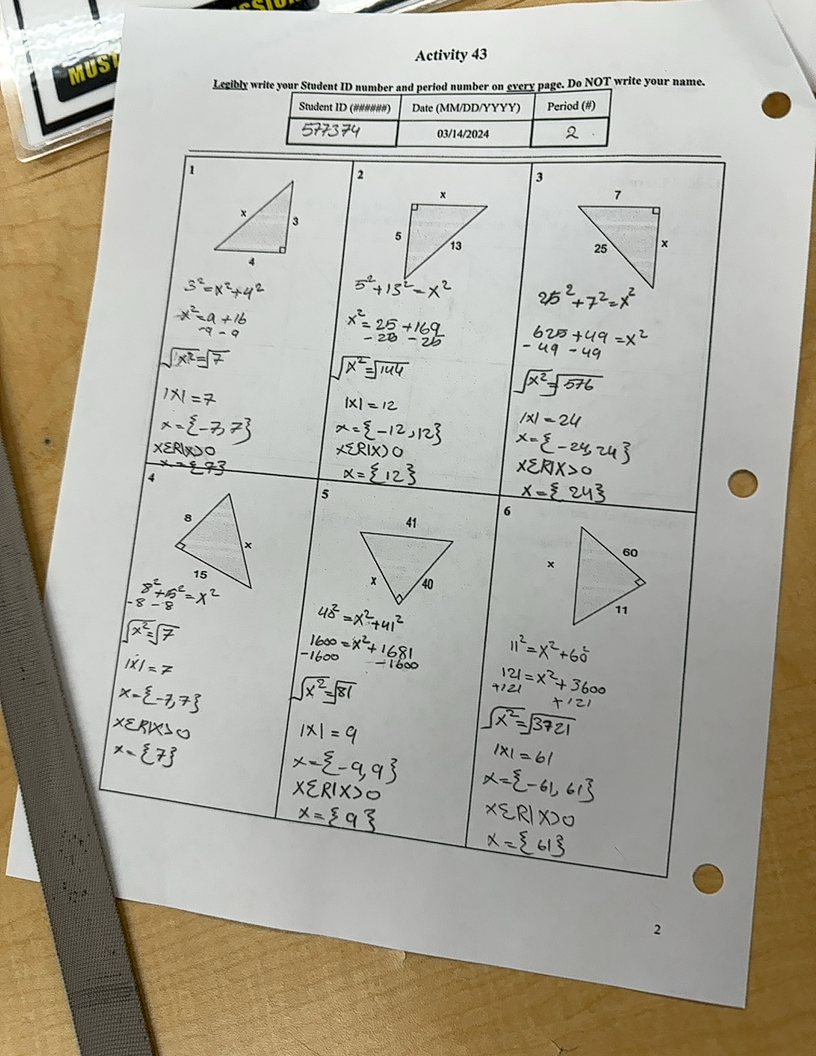 MUST
SSION
Activity 43
Legibly write your Student ID number and period number on every page. Do NOT write your name.
Student ID (######) Date (MM/DD/YYYY) Period (#)
577374 03/14/2024 2
1
x
3
4
3²=x²+4²
x²=9+16
-9 -9
√x²=√7
|x|=7
x={-7,7}
xΣR|x>0
x={7}
2
x
5
13
5²+13²=x²
x²=25+169
-25 -25
√x²=√144
|x|=12
x={-12,12}
xΣR|x>0
x={12}
3
7
25
x
25²+7²=x²
625+49=x²
-49 -49
√x²=√576
|x|=24
x={-24,24}
xΣR|x>0
x={24}
4
8
x
15
8²+15²=x²
-8 -8
√x²=√7
|x|=7
x={-7,7}
xΣR|x>0
x={7}
5
41
x
40
40²=x²+41²
1600=x²+1681
-1600 -1600
√x²=√81
|x|=9
x={-9,9}
xΣR|x>0
x={9}
6
60
x
11
11²=x²+60²
121=x²+3600
+121 +121
√x²=√3721
|x|=61
x={-61,61}
xΣR|x>0
x={61}
2